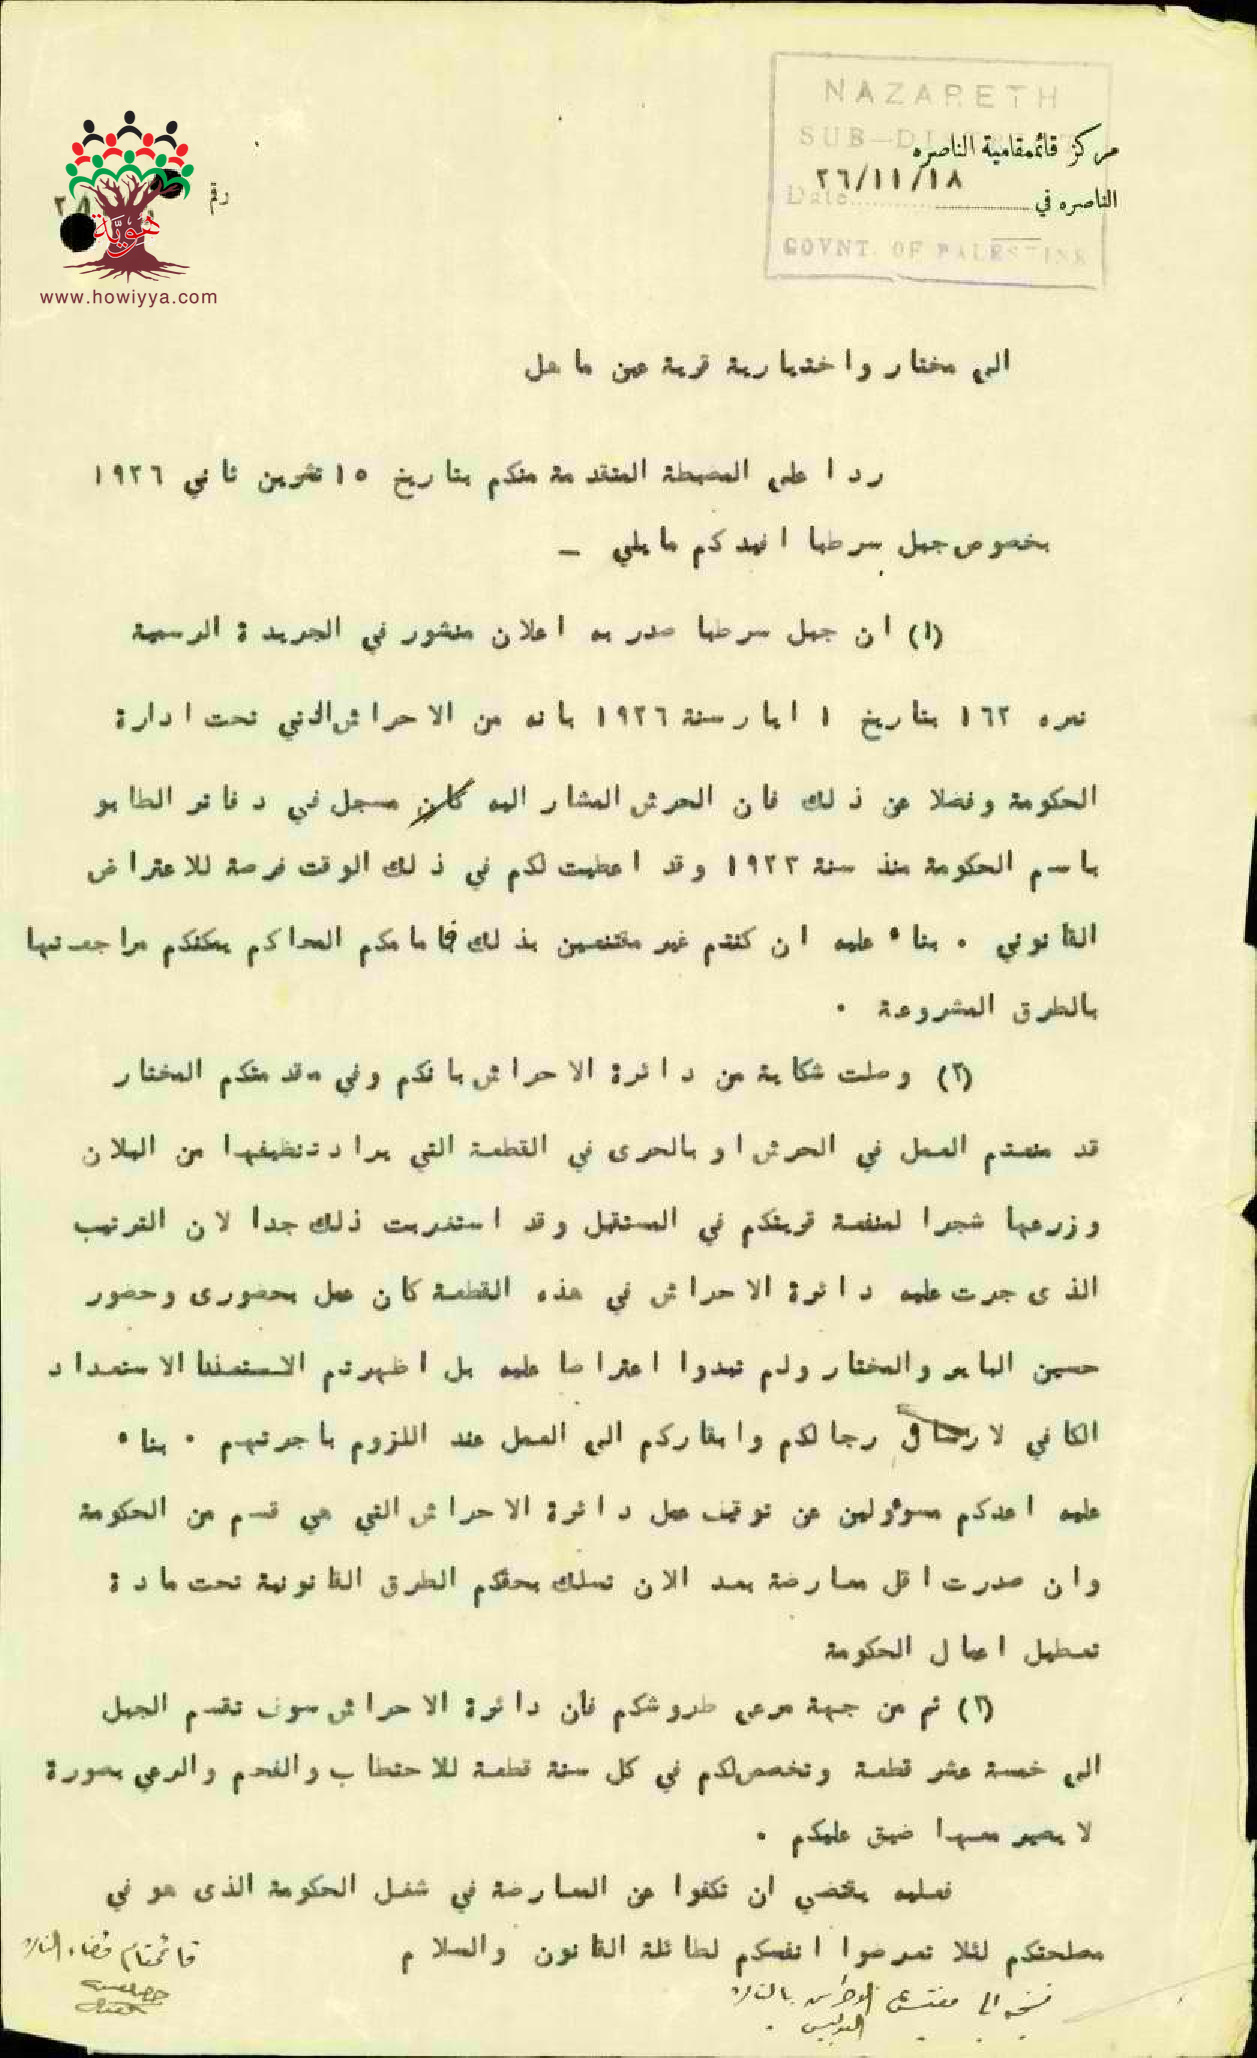 NAZARETH
SUB-DISTRICT
مركز قائمقامية الناصره
٢٦/١١/١٨
الناصره في
Date
GOVNT. OF PALESTINE
رقم
٢٨
هويّة
www.howiyya.com
الى مختار واختيارية قرية عين ماهل
ردا على المضبطة المتقدمة منكم بتاريخ ١٥ تشرين ثاني ١٩٢٦
بخصوص جبل سرطبا افيدكم مايلي –
(١) ان جبل سرطبا صدر به اعلان منشور في الجريدة الرسمية
نمره ١٦٢ بتاريخ ١ ايار سنة ١٩٢٦ بانه من الاحراش التي تحت ادارة
الحكومة وفضلا عن ذلك فان الحرش المشار اليه كان مسجل في دفاتر الطابو
باسم الحكومة منذ سنة ١٩٢٣ وقد اعطيت لكم في ذلك الوقت فرصة للاعتراض
القانوني . بناء عليه ان كنتم غير مقتنعين بذلك فامامكم المحاكم يمكنكم مراجعتها
بالطرق المشروعة .
(٢) وصلت شكاية من دائرة الاحراش بانكم وفي مقدمتكم المختار
قد منعتم العمل في الحرش او بالحرى في القطعة التي يراد تنظيفها من البلان
وزرعها شجرا لمنفعة قريتكم في المستقبل وقد استغربت ذلك جدا لان الترتيب
الذى جرت عليه دائرة الاحراش في هذه القطعة كان عمل بحضورى وحضور
حسين البابو والمختار ولم تبدوا اعتراضا عليه بل اظهرتم الاستعداد
الكافي لارسال رجالكم وابقاركم الى العمل عند اللزوم باجرتهم . بناء
عليه اعدكم مسوءولين عن توقيف عمل دائرة الاحراش التي هي قسم من الحكومة
وان صدرت اقل معارضة بعد الان نسلك بحقكم الطرق القانونية تحت مادة
تعطيل اعمال الحكومة
(٣) ثم من جهة مرعى طروشكم فان دائرة الاحراش سوف تقسم الجبل
الى خمسة عشر قطعة وتخصص لكم في كل سنة قطعة للاحتطاب والفحم والرعي بصورة
لا يصير معها ضيق عليكم .
فعليه يقتضي ان تكفوا عن المعارضة في شغل الحكومة الذى هو في
مصلحتكم لئلا تعرضوا انفسكم لطائلة القانون والسلام
قائمقام قضاء الناصره
نسخة الى مفتش الاحراش بالناصره
البوليس